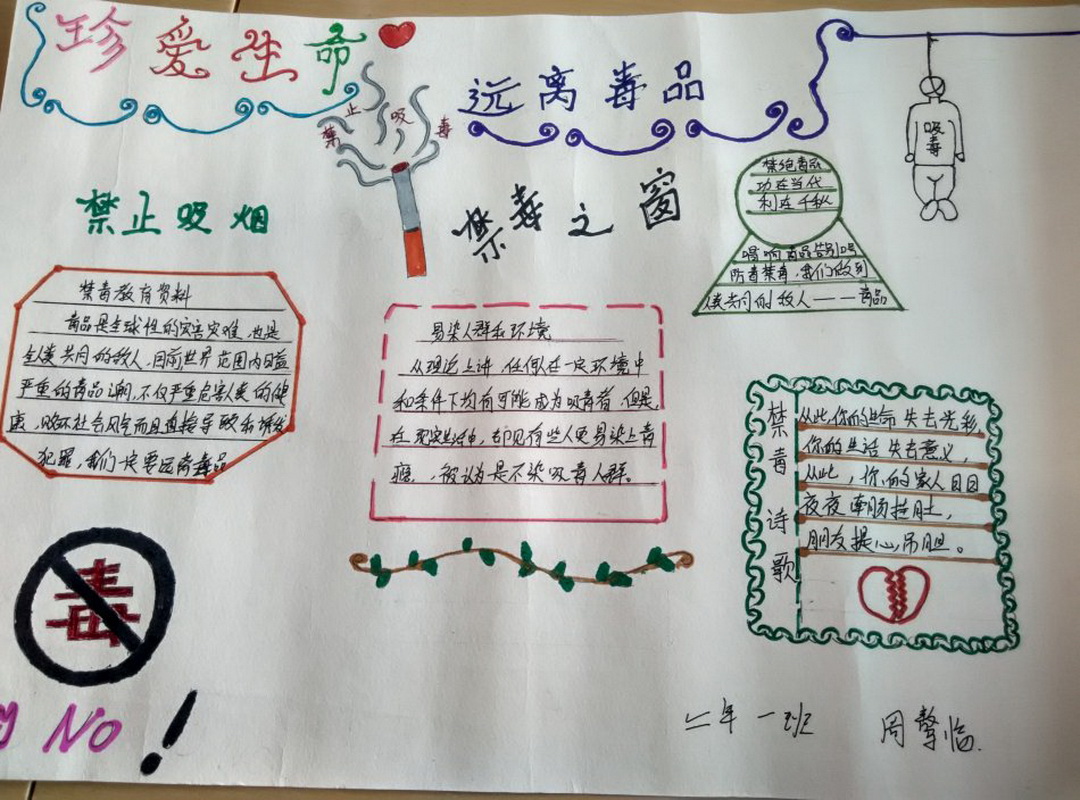 珍爱生命
远离毒品
禁止吸毒
吸毒
禁止吸烟
禁毒之窗
禁绝毒品
功在当代
利在千秋
唱响毒品告别曲
防毒禁毒，我们做到
人类共同的敌人——毒品
禁毒教育资料
毒品是全球性的灾害灾难，也是
全人类共同的敌人，目前世界范围内日益
严重的毒品潮，不仅严重危害人类的健
康，败坏社会风气而且直接导致和诱发
犯罪，我们一定要远离毒品
易染人群和环境
从理论上讲，任何在一定环境中
和条件下均有可能成为吸毒者，但是，
在现实生活中，却见有些人更易染上毒
瘾，被认为是不染吸毒人群。
禁毒诗歌
从此，你的生命失去光彩，
你的生活失去意义，
从此，你的家人日日
夜夜牵肠挂肚，
朋友提心吊胆。
毒
No！
一班